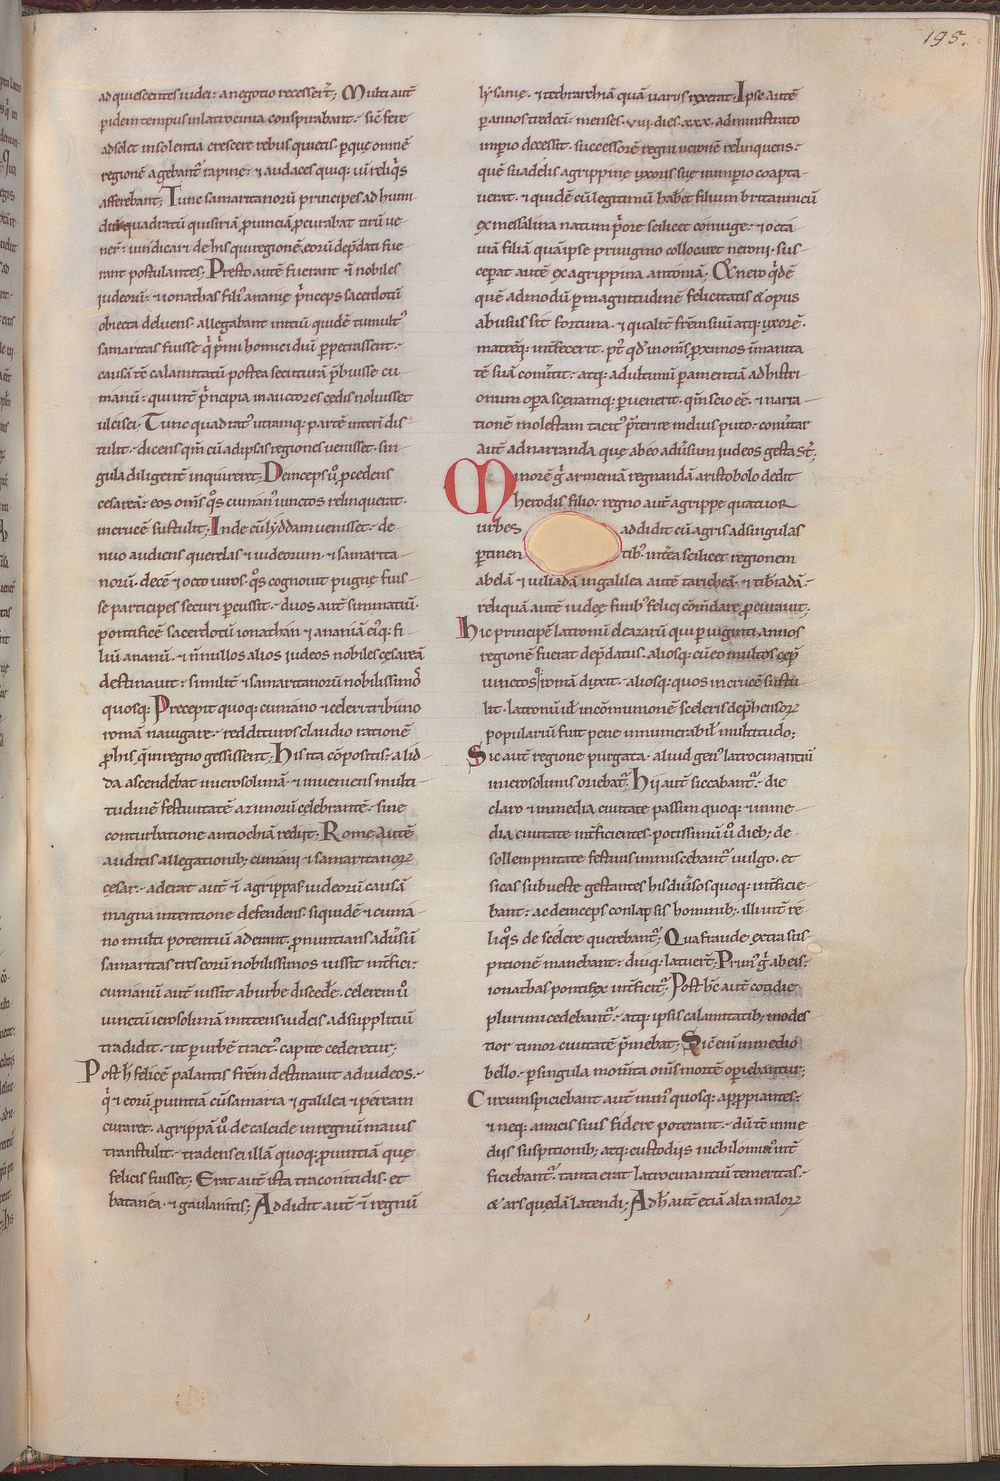 195.
adquiescentes iudei: a negotio recesserṫ; Multi aut̄
p̱ idem tempus in latrocinia conspirabant· sic̄ fere
adsolet insolentia crescere rebus quietis· p̱quę omnē
regionē agebant᷑ rapinę: ⁊ audaces quiq; uī reliq̇s
afferebant; Tunc samaritanorū principes ad humi
diū quadratū qui siriā prouinciā p̱curabat tirū ue
ner̄· uindicari de his qui regionē eorū dep̄dati fue
rant postulantes; Presto autē fuerant ⁊ nobiles
iudeorū: ⁊ ionathas fili᷒ ananię p̄nceps sacerdotū
obiecta deluens· allegabant initiū quidē tumult᷒
samaritas fuisse q̇ p̄mi homicidiū p̱petrassent·
causā r̄e calamitatū postea secuturā p̄buisse cu
manū: qui unt̄ p̄ncipia in auctores cędis noluisset
ulcisci· Tunc quadrat᷒ utramq; partē interī dis
tulit· dicens qm̄ cū ad ipsas regiones uenisset· sin
gula diligent̄ inquireret; Deinceps ů p̱cedens
cesareā: eos om̄s q̊s cuman᷒ iunctos relinquerat·
in crucē sustulit; Inde cū lyddam uenisset· de
nuo audiens querelas ⁊ iudeorum· ⁊ samarita
norū· decē ⁊ octo uiros· q̊s cognouit pugnę fuis
se participes securi p̱cussit· duos aut̄ summatiū·
pontificē sacerdotū ionathān ⁊ ananiā ei᷒q; fi
liū ananū· ⁊ n̄nullos alios iudeos nobiles cęsareā
destinauit: similit̄ ⁊ samaritanorū nobilissimo᷒
quosq; Precepit quoq; cumano ⁊ celeri tribuno
romā nauigare· reddituros claudio rationē
p̱ his q̄ in regno gessissent; His ita cōpositis· a lid
da ascendebat in ierosolimā· ⁊ inueniens multi
tudinē festiuitatē azimorū celebrantē· sine
conturbatione antiochiā rediit; Rome autē
auditis allegationib; cumani ⁊ samaritanoꝝ
cęsar· aderat aut̄ ⁊ agrippas iudeorū causā
magna intentione defendens· siquidē ⁊ cuma
no multi potentiū aderant· pronuntians adu᷒sū
samaritas tres eorū nobilissimos iussit int̄fici:
cumanū aut̄ iussit ab urbe discedere· celerem ů
uinctū ierosolimā mittens iudeis ad suppliciū
tradidit· ut p̱ urbē tract᷒ capite cederetur;
Post h̄ felicē palantis fr̄em destinauit ad iudeos·
q̇ ⁊ eorū prouintiā cū samaria ⁊ galilea ⁊ peream
curaret· agrippā ů de calcide in regnū maius
transtulit· tradens ei illā quoq; prouintiā quę
felicis fuisset; Erat aut̄ ista traconitidis· et
batanea· ⁊ gaulanitis; Addidit aut̄ ⁊ regnū
lysanię· ⁊ tethrarchiā quā uarus rexerat· Ipse autē
p̱ annos tredeci· menses· viii· dies xxx· administrato
imp̱io decessit· successorē regni neronē relinquens·
quē suadelis agrippinę uxoris suę in imp̱io coapta
uerat· ⁊ quidē cū legitimū haberet filium britannicū
ex messalina natum p̄ore scilicet coniuge· ⁊ octa
uiā filiā quā ipse priuigno collocaret neroni· sus
ceperat autē ex agrippina antoniā; Qd̄ nero q̇dē
quē admodū p̱ magnitudinē felicitatis ⁊ opus
abusus sit fortuna· ⁊ qualit̄ fr̄em suū atq; uxorē·
matrēq; int̄fecerit· p̱t qd̄ in om̄s p̱ximos inmanita
tē suā conu᷒tit: atq; ad ultimū p̱ amentiā ad histri
onum op̱a scęnamq; p̱uenerit· qm̄ scio eē· ⁊ narra
tionē molestam tacit᷒ p̄terire melius puto· conu᷒tar
aut̄ ad narranda quę ab eo adu᷒sum iudeos gesta st̄;
Minorē ġ armeniā regnandā aristobolo dedit
herodis filio· regno aut̄ agrippe quatuor
urbes addidit cū agris ad singulas
p̱tinen tib᷒ int̄ea scilicet regionem
abelā ⁊ iuliadā in galilea autē taricheā· ⁊ tib̄iadā·
reliquā autē iudeę finib᷒ felicē cōm̄dare p̱curauit;
hic principē latronū eleazarū qui p̱ uiginti annos
regionē fuerat dep̄datus· aliosq; cū eo multos cep̄
iunctos q; romā dixit· aliosq; quos in crucē sustu
lit· latronū ul̄ in cōmunionē sceleris dep̄hensoꝝ
popularium fuit pene innumerabil᷒ multitudo;
Sic aut̄ regione purgata· aliud gen᷒ latrocinantiū
in ierosolimis oriebat᷑; Hij aut̄ siccabant᷑· die
claro ⁊ in media ciuitate passim quoq; ⁊ in me
dia ciuitate int̄ficientes· potissimū ů dieb; de
sollempnitate festiuis inmiscebant᷑ uulgo· et
sicas sub ueste gestantes his diu᷒sos quoq; int̄ficie
bant: ac deinceps conlapsis hominib;· illi int̄ re
liq̊s de scelere querebant᷑; Qua fraude extra sus
pitionē manebant· diuq; latuer̄t; Prim᷒ ġ ab eis
ionathas pontifex int̄ficit᷑; Post h̄c autē cotidie
plurimi cedebant᷑· atq; ipsis calamitatib; inmodes
tior timor ciuitatē p̄mebat; Sic̄ enī in medio
bello· p̱ singula mom̄ta om̄s mortē op̱iebantur;
Circumspiciebant aut̄ inim᷒ quosq; app̱piantes·
⁊ neq; amicis suis fidere poterant· dū tē in me
diis suspitionib; atq; custodiis nichilomin᷒ int̄
ficiebant᷑· tanta erat latrocinantiū temeritas·
⁊ ars quędā latendi; Ad h̄ autē etiā alia maloꝝ